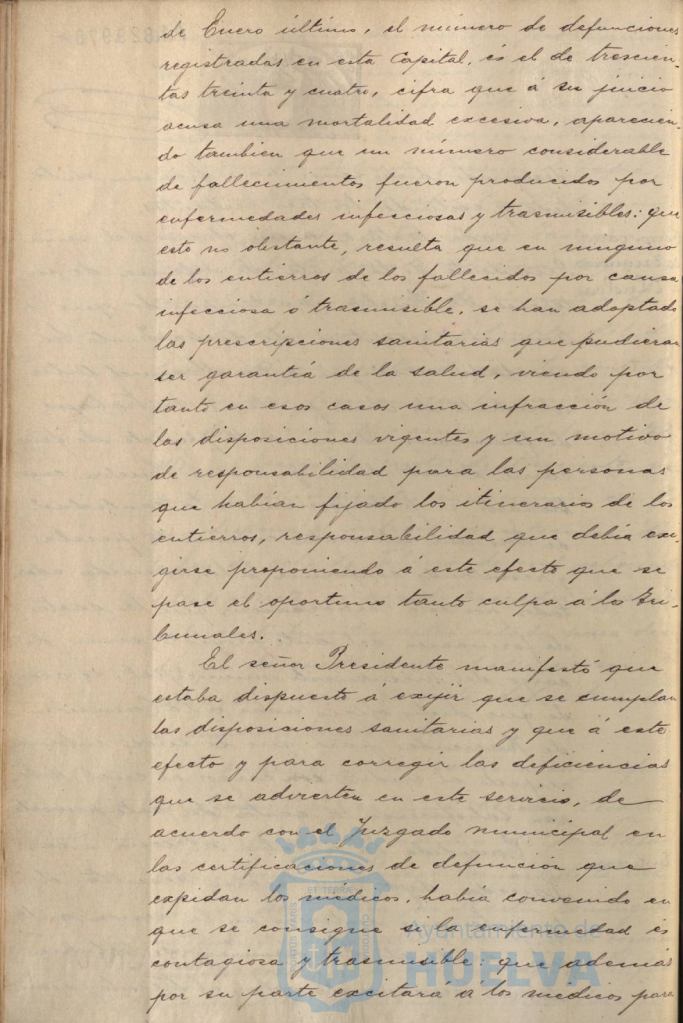 de Enero último, el número de defunciones
registradas en esta Capital, és el de trescien-
tas treinta y cuatro, cifra que á su juicio
acusa una mortalidad excesiva, aparecien-
do tambien que un número considerable
de fallecimientos fueron producidos por
enfermedades infecciosas y trasmisibles: que
esto no obstante, resulta que en ninguno
de los entierros de los fallecidos por causa
infecciosa ó trasmisible, se han adoptado
las prescripciones sanitarias que pudieran
ser garantiá de la salud, viendo por
tanto en esos casos una infracción de
las disposiciones vigentes y un motivo
de responsabilidad para las personas
que habian fijado los itinerarios de los
entierros, responsabilidad que debia exi-
girse proponiendo á este efecto que se
pase el oportuno tanto culpa á los Tri-
bunales.
El señor Presidente manifestó que
estaba dispuesto á exijir que se cumplan
las disposiciones sanitarias y que á este
efecto y para corregir las deficiencias
que se advierten en este servicio, de
acuerdo con el Juzgado municipal en
las certificaciones de defunción que
expidan los médicos, habia convenido en
que se consigne si la enfermedad és
contagiosa y trasmisible: que además
por su parte excitará á los médicos para
Ayuntamiento de
HUELVA